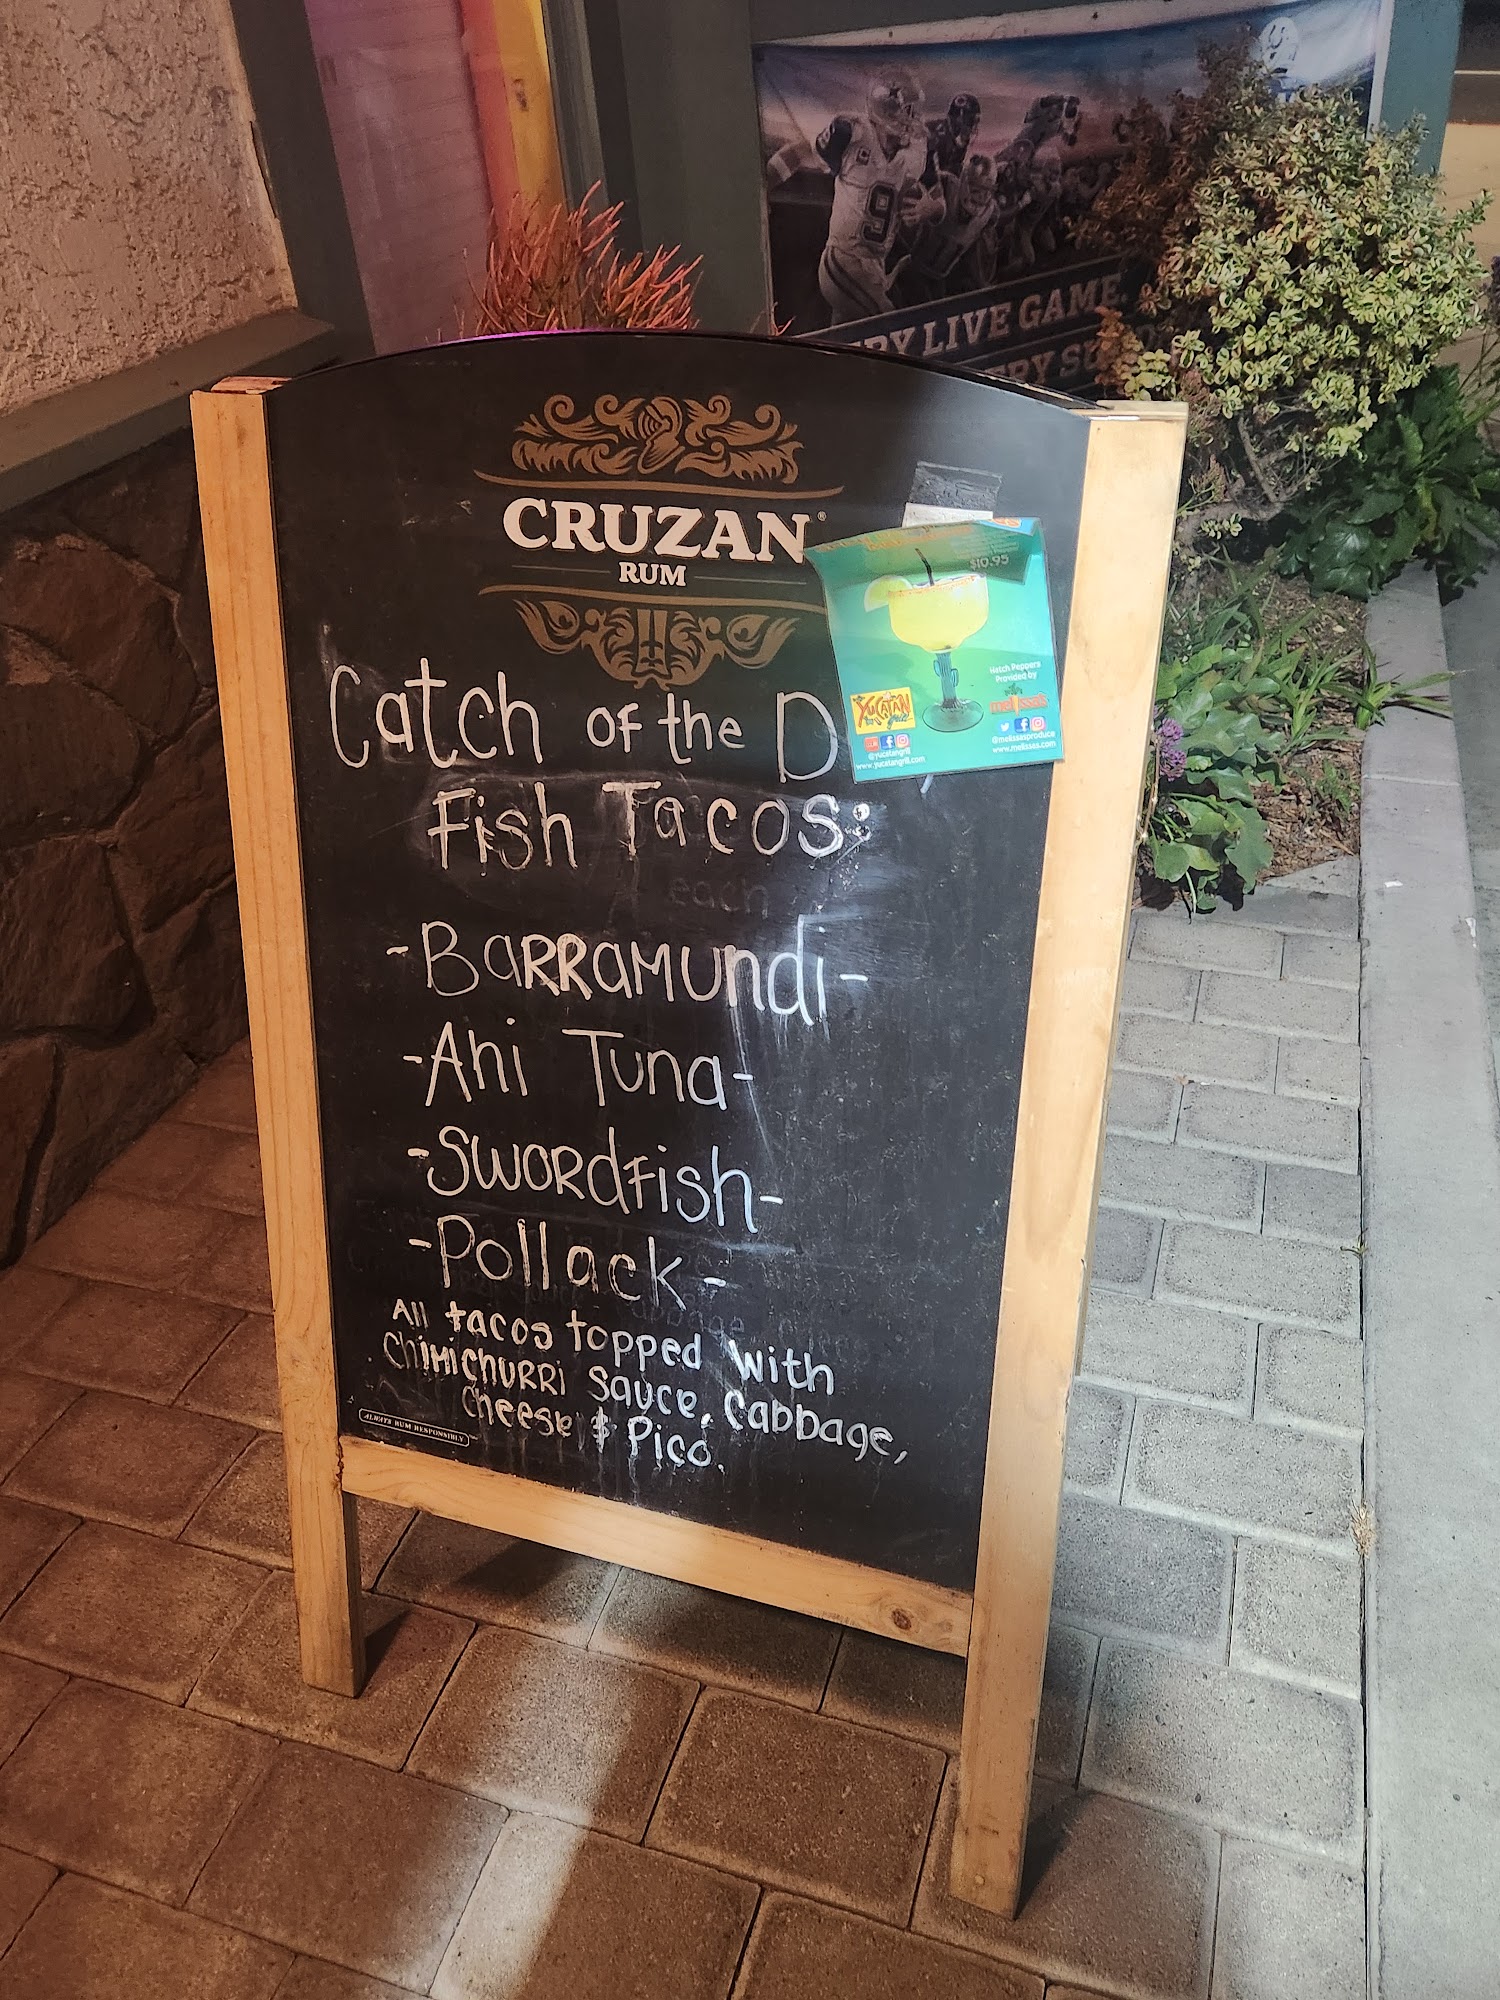 9
LIVE GAME.
CRUZAN®
RUM
$10.95
Hatch Peppers
Provided by
melissa's
YUCATAN
grill
@yucatangrill
www.yucatangrill.com
@melissasproduce
www.melissas.com
Catch of the D
Fish Tacos:
each
-BARRAMUNdi-
-Ahi Tuna-
-SWORdFish-
-Pollack-
All tacos topped with
ChiMiChURRi Sauce, Cabbage,
Cheese & Pico.
ALWAYS RUM RESPONSIBLY